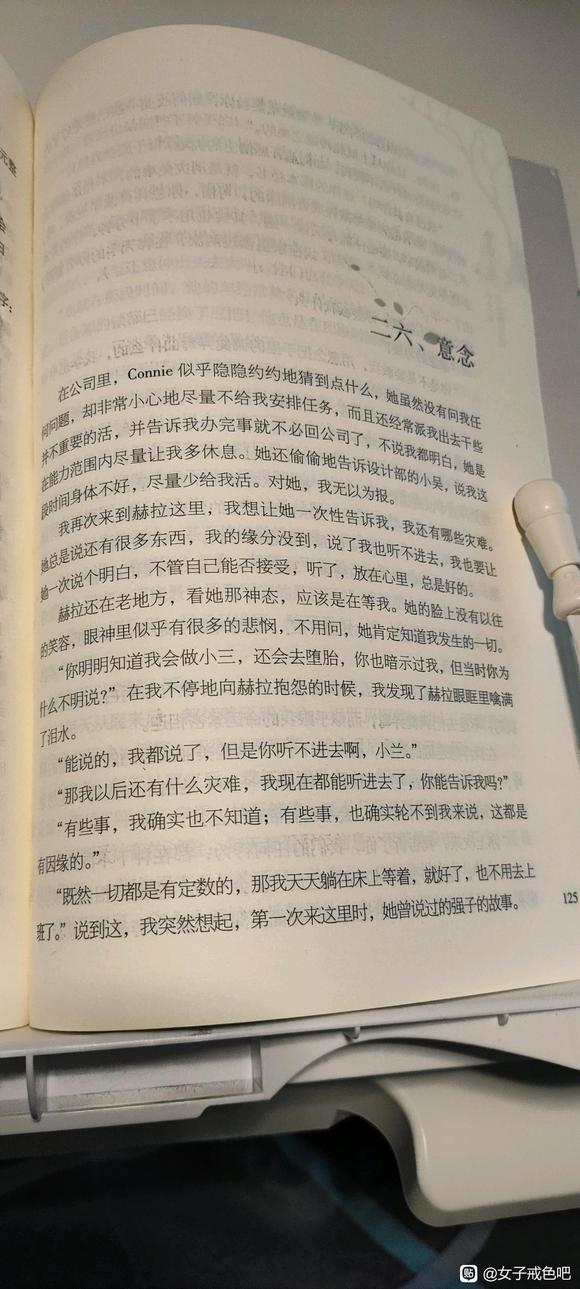 二六、意念
在公司里，Connie 似乎隐隐约约地猜到点什么，她虽然没有问我任
何问题，却非常小心地尽量不给我安排任务，而且还经常派我出去干些
并不重要的活，并告诉我办完事就不必回公司了，不说我都明白，她是
在能力范围内尽量让我多休息。她还偷偷地告诉设计部的小吴，说我这
段时间身体不好，尽量少给我活。对她，我无以为报。
我再次来到赫拉这里，我想让她一次性告诉我，我还有哪些灾难。
她总是说还有很多东西，我的缘分没到，说了我也听不进去，我也要让
她一次说个明白，不管自己能否接受，听了，放在心里，总是好的。
赫拉还在老地方，看她那神态，应该是在等我。她的脸上没有以往
的笑容，眼神里似乎有很多的悲悯，不用问，她肯定知道我发生的一切。
“你明明知道我会做小三，还会去堕胎，你也暗示过我，但当时你为
什么不明说？”在我不停地向赫拉抱怨的时候，我发现了赫拉眼眶里噙满
了泪水。
“能说的，我都说了，但是你听不进去啊，小兰。”
“那我以后还有什么灾难，我现在都能听进去了，你能告诉我吗？”
“有些事，我确实也不知道；有些事，也确实轮不到我来说，这都是
有因缘的。”
“既然一切都是有定数的，那我天天躺在床上等着，就好了，也不用去上
班了。”说到这，我突然想起，第一次来这里时，她曾说过的强子的故事。
125
贴 @女子戒色吧